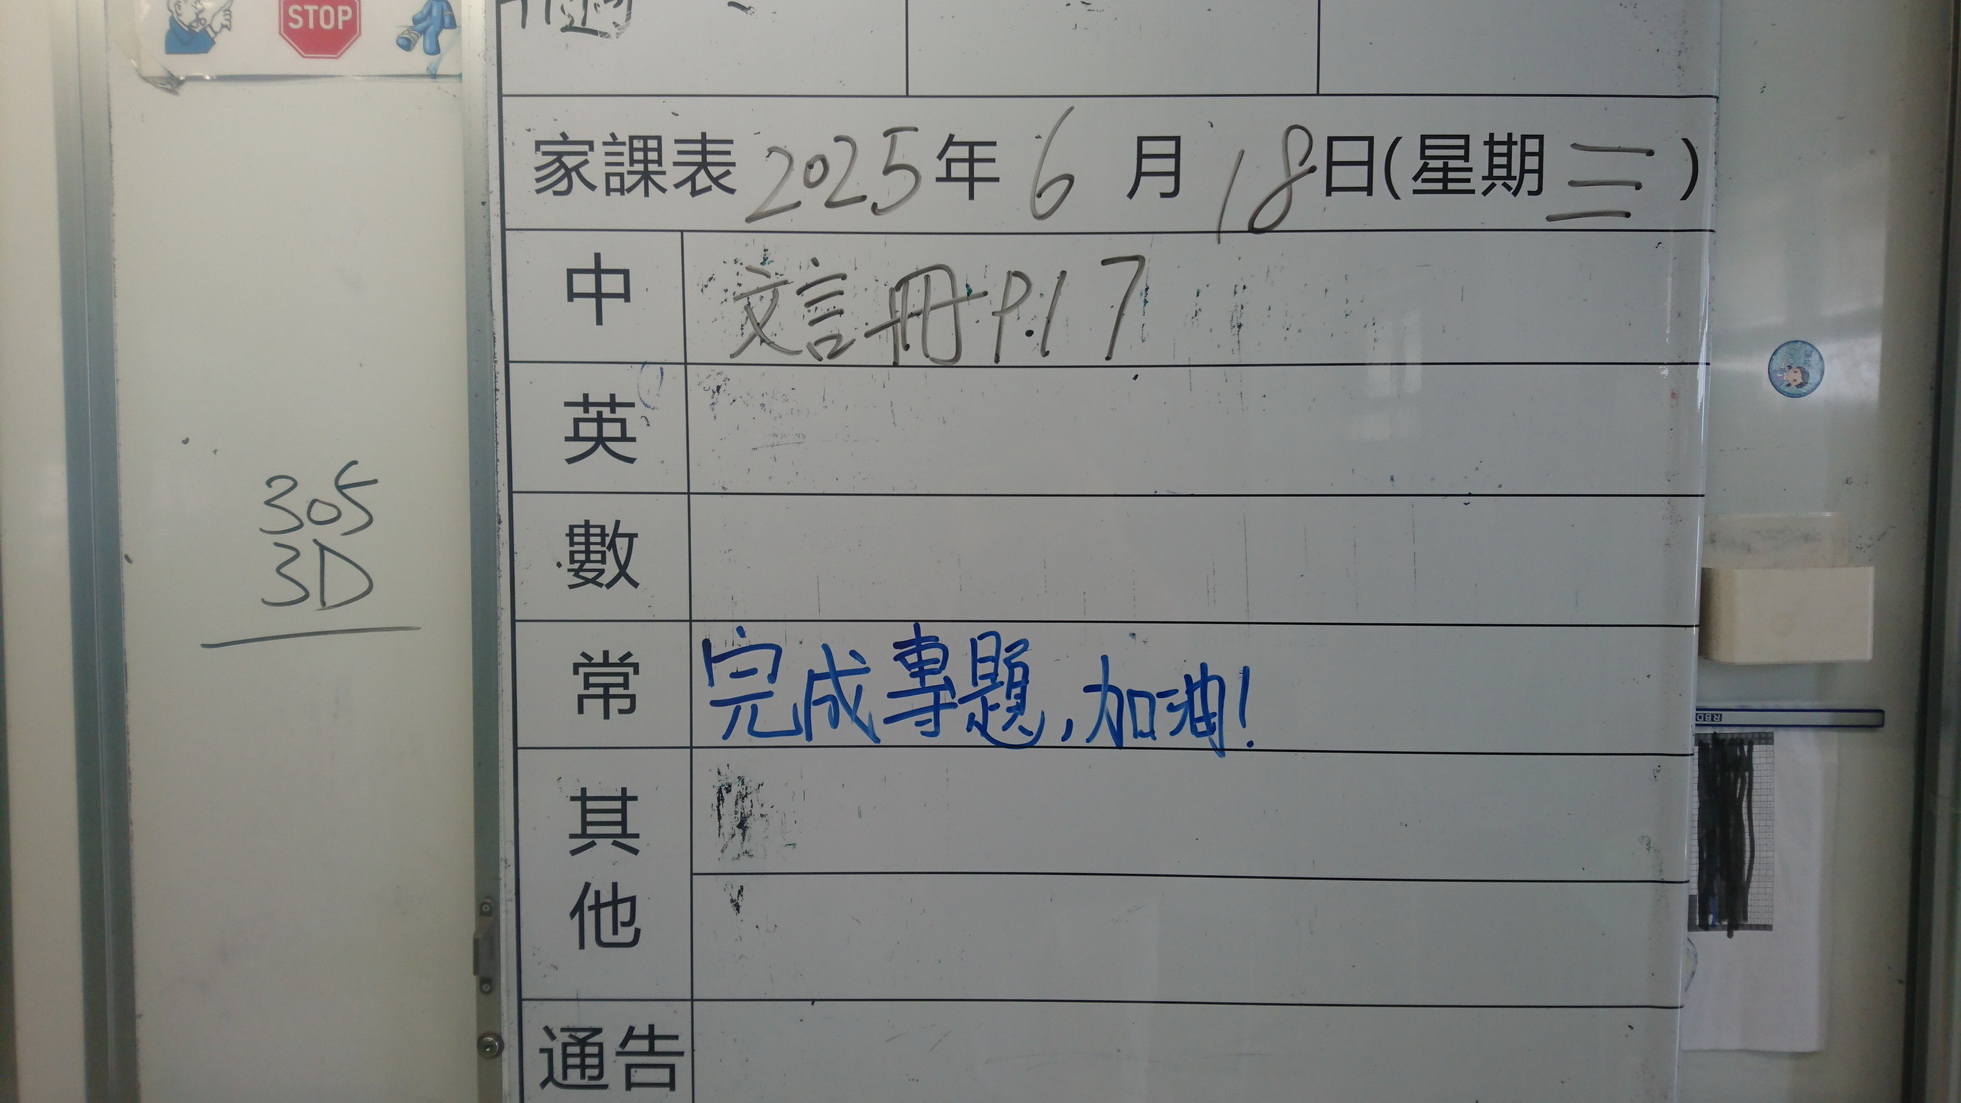 STOP
家課表 2025年 6 月 18日(星期三)
中 文言冊 P.17
英
數
常 完成專題,加油!
其他
通告
305
3D